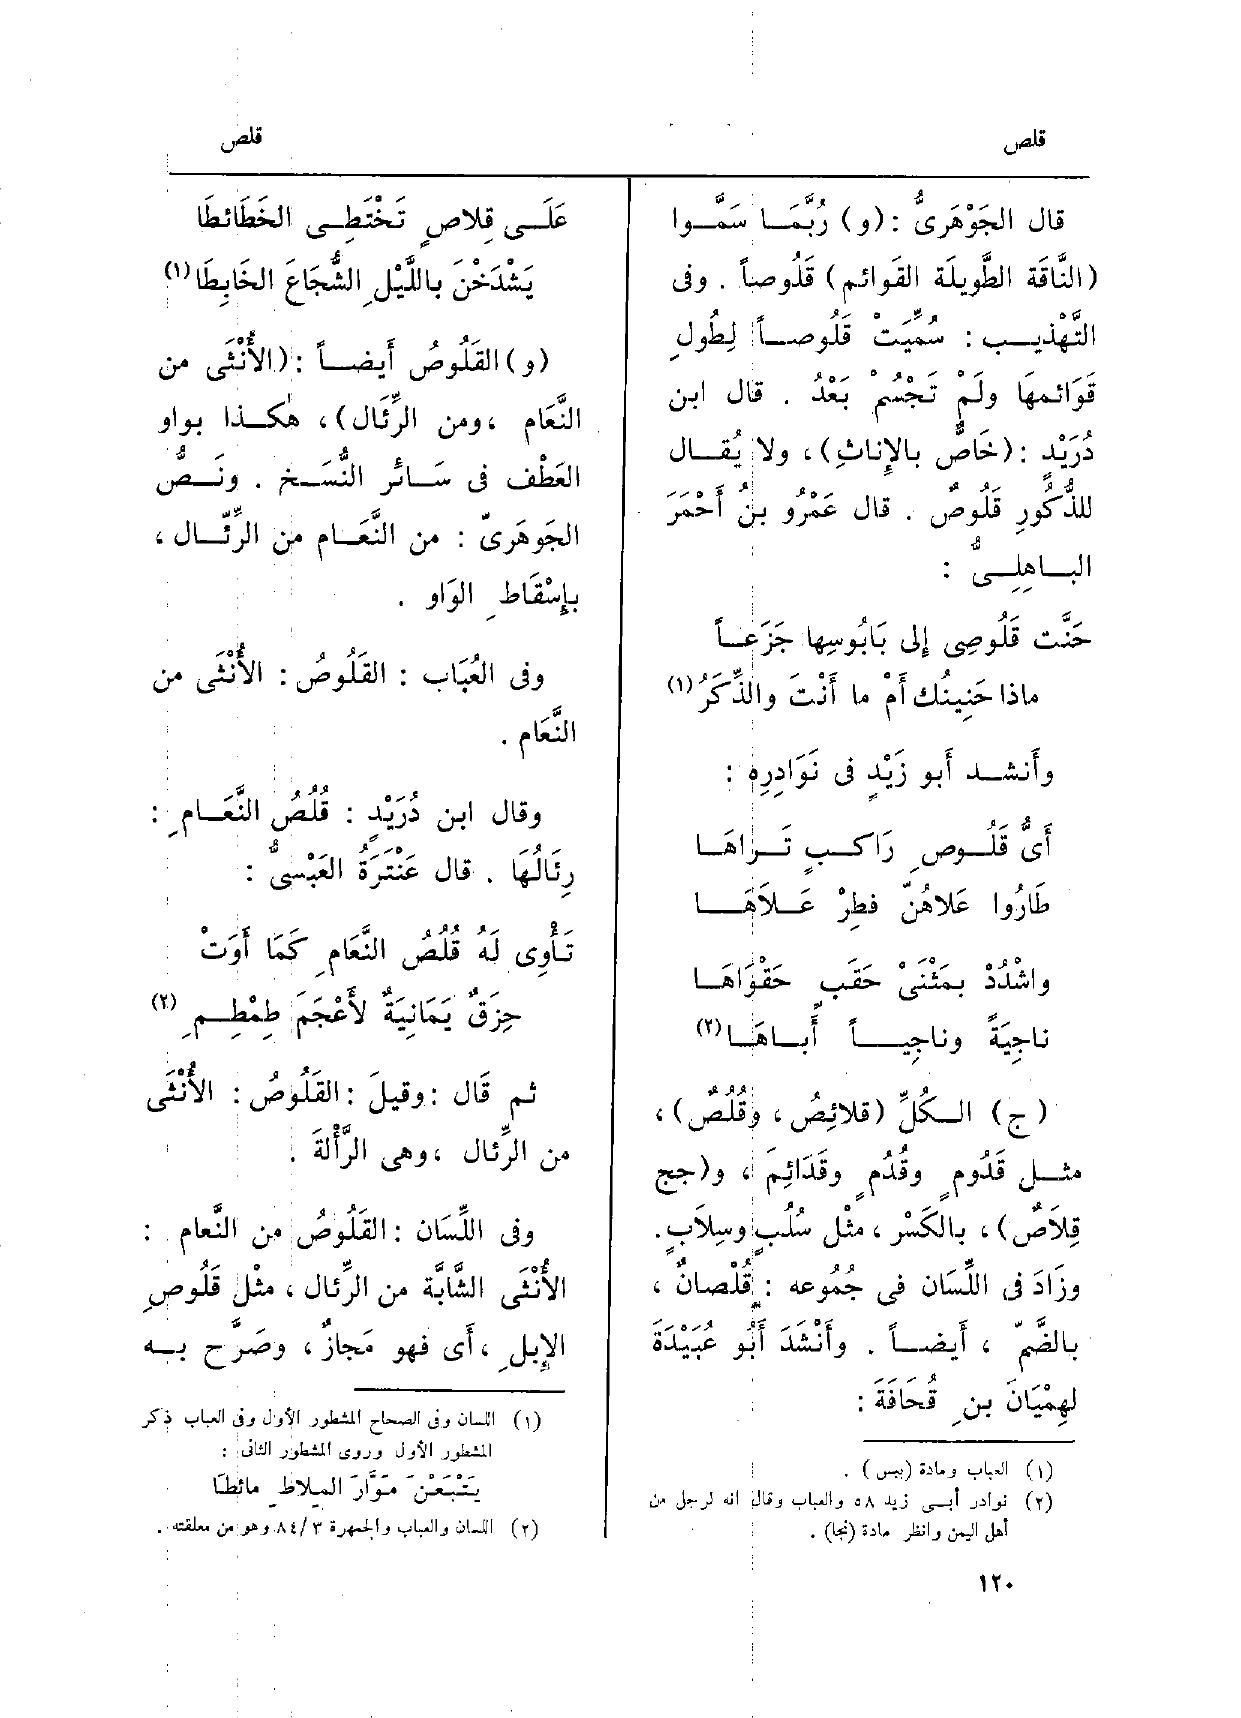 قلص
قلص
قال الجَوْهَرِىُّ : (و) رُبَّمَا سَمَّوا
(النَّاقَة الطَّوِيلَة القَوائم) قَلُوصاً . وفى
التَّهْذيب : سُمِّيَتْ قَلُوصاً لِطُولِ
قَوَائمهَا ولَمْ تَجْسُمْ بَعْدُ . قال ابن
دُرَيْدٍ : (خَاصٌّ بالإِناثِ) ، ولا يُقال
للذُّكُورِ قَلُوصٌ . قال عَمْرُو بنُ أَحْمَرَ
الباهِلِىُّ :
حَنَّت قَلُوصِى إِلى بَابُوسِها جَزَعاً
ماذا حَنِينُك أَمْ ما أَنْتَ والذِّكَرُ (١)
وأَنشد أَبو زَيْدٍ فى نَوَادِرِه :
أَىُّ قَلُوصِ رَاكبٍ تَراهَا
طَارُوا عَلاهُنّ فطِرْ عَلاَهَا
واشْدُدْ بمَثْنَىْ حَقَبٍ حَقْوَاهَا
ناجِيَةً وناجِياً أَباهَا (٢)
(ج) الكُلِّ (قلائِصُ ، وقُلُصٌ) ،
مثل قَدُومٍ وقُدُمٍ وقَدَائِمَ ، و(جج
قِلاَصٌ) ، بالكَسْر ، مثْل سُلُبٍ وسِلاَبٍ .
وزَادَ فى اللِّسَان فى جُمُوعه : قُلْصانٌ ،
بالضَّمّ ، أَيضاً . وأَنْشَدَ أَبُو عُبَيْدَةَ
لهِمْيَانَ بنِ قُحَافَةَ :
(١) العباب ومادة (ببس) .
(٢) نوادر أبى زيد ٥٨ والعباب وقال انه لرجل من
أهل اليمن وانظر مادة (نجا) .
عَلَى قِلاصٍ تَخْتَطِى الخَطَائطَا
يَشْدَخْنَ باللَّيْلِ الشُّجَاعَ الخَابِطَا (١)
(و) القَلُوصُ أَيضاً : (الأُنْثَى من
النَّعَام ، ومن الرِّئَال) ، هٰكذا بواو
العَطْف فى سَائر النُّسَخ . ونَصُّ
الجَوهَرىّ : من النَّعَام من الرِّئَال ،
بإِسْقَاطِ الوَاو .
وفى العُبَاب : القَلُوصُ : الأُنْثَى من
النَّعَام .
وقال ابن دُرَيْدٍ : قُلُصُ النَّعَامِ :
رِئَالُهَا . قال عَنْتَرَةُ العَبْسىُّ :
تَأْوِى لَهُ قُلُصُ النَّعَامِ كَمَا أَوَتْ
حِزَقٌ يَمَانِيَةٌ لأَعْجَمَ طِمْطِمِ (٢)
ثم قَال : وقيلَ : القَلُوصُ : الأُنْثَى
من الرِّئال ، وهى الرَّأْلَةَ .
وفى اللِّسَان : القَلُوصُ من النَّعام :
الأُنْثَى الشَّابَّة من الرِّئال ، مثْل قَلُوصِ
الإِبلِ ، أَى فهو مَجازٌ ، وصَرَّح به
(١) اللسان وفى الصحاح المشطور الأول وفى العباب ذكر
المشطور الأول وروى المشطور الثانى :
يَتْبَعْنَ مَوَّارَ المِلاطِ مائطَا
(٢) اللسان والعباب والجمهرة ٣ /٨٤ وهو من معلقته .
١٢٠